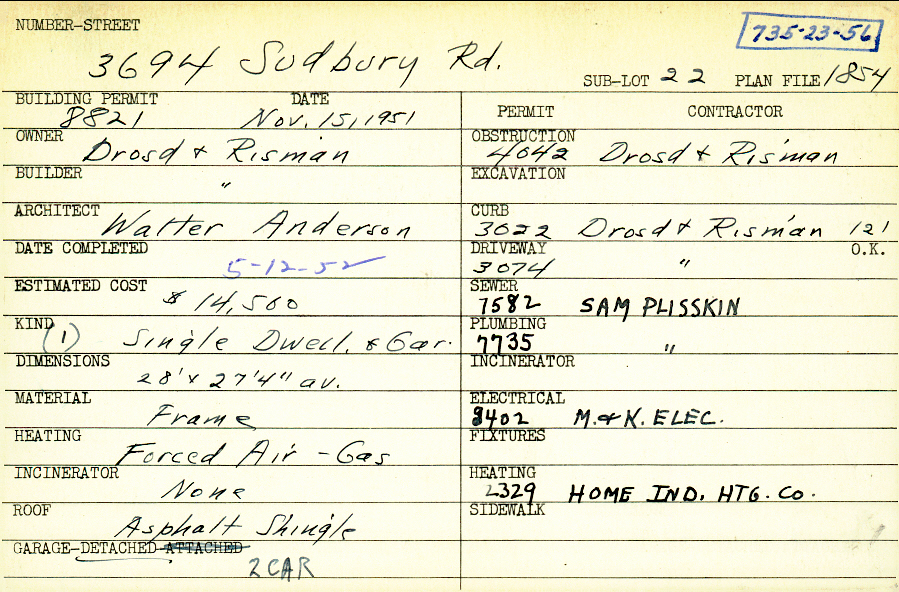 NUMBER-STREET
735-23-56
3694 Sudbury Rd.
SUB-LOT 22 PLAN FILE 1854
BUILDING PERMIT DATE
8821 Nov. 15, 1951
OWNER
Drosd & Risman
BUILDER
"
ARCHITECT
Walter Anderson
DATE COMPLETED
5-12-52
ESTIMATED COST
$ 14,500
KIND
(1) Single Dwell. & Gar.
DIMENSIONS
28' x 27'4" av.
MATERIAL
Frame
HEATING
Forced Air - Gas
INCINERATOR
None
ROOF
Asphalt Shingle
GARAGE-DETACHED-ATTACHED
2 CAR
PERMIT CONTRACTOR
OBSTRUCTION
4042 Drosd & Risman
EXCAVATION
CURB
3022 Drosd & Risman 121
DRIVEWAY O.K.
3074 "
SEWER
7582 SAM PLISSKIN
PLUMBING
7735 "
INCINERATOR
ELECTRICAL
8402 M. & K. ELEC.
FIXTURES
HEATING
2329 HOME IND. HTG. CO.
SIDEWALK